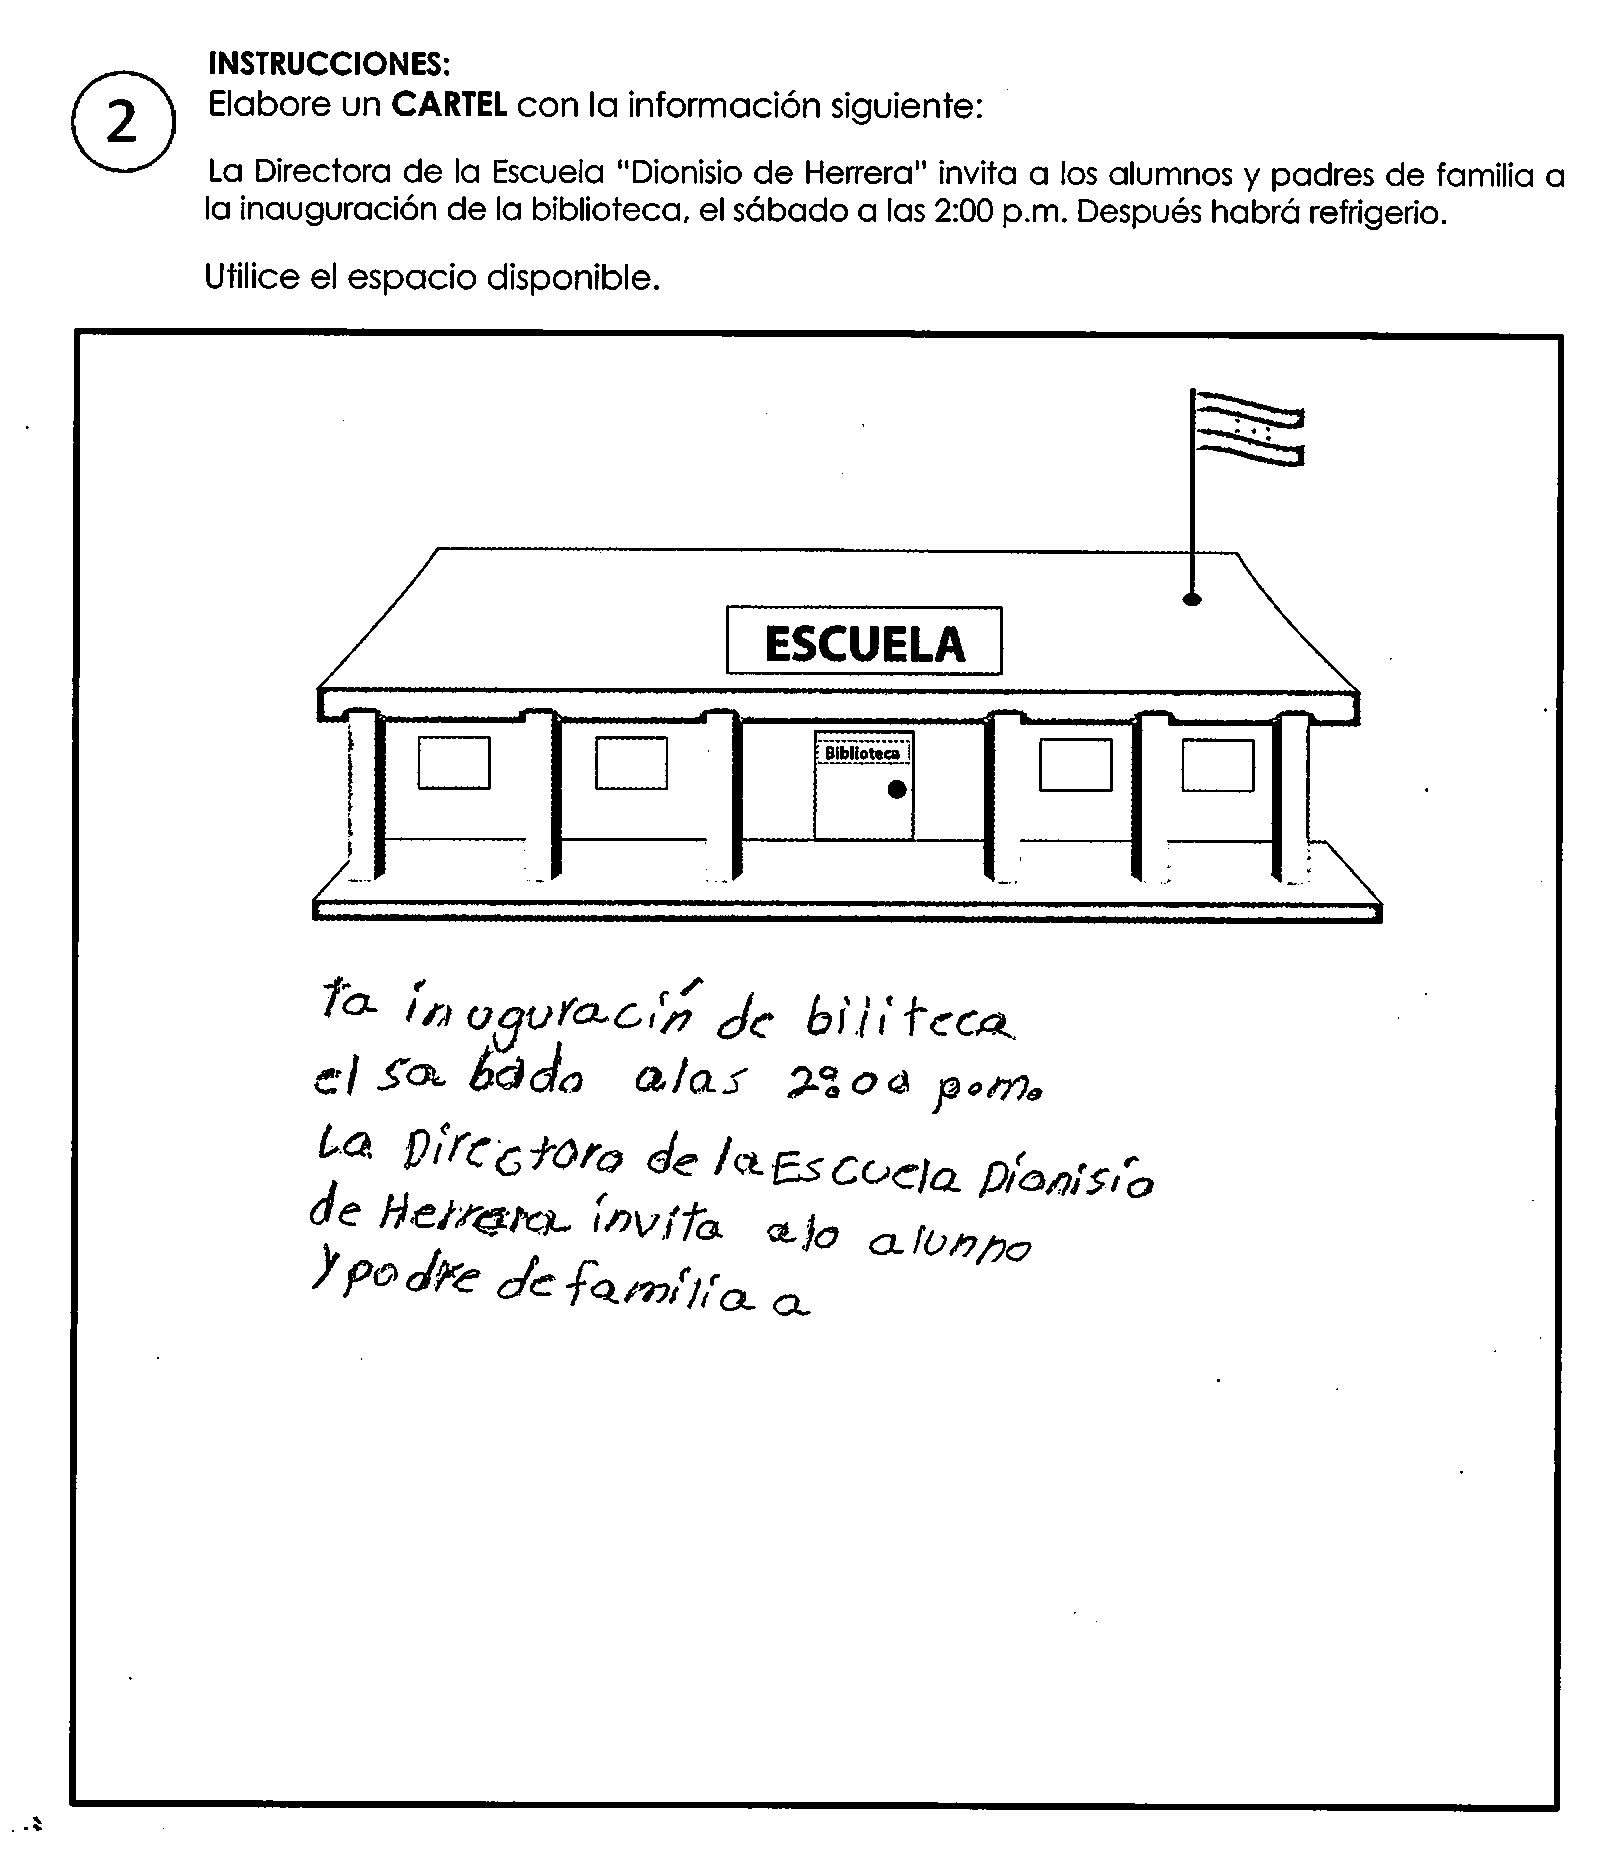 INSTRUCCIONES:
2
Elabore un CARTEL con la información siguiente:
La Directora de la Escuela "Dionisio de Herrera" invita a los alumnos y padres de familia a
la inauguración de la biblioteca, el sábado a las 2:00 p.m. Después habrá refrigerio.
Utilice el espacio disponible.
ESCUELA
Biblioteca
ta inuguraciń de biliteca
el sa bado alas 2:00 p.m.
La Directora de la Escuela Dionisio
de Herrera invita alo alunno
y padre de familia a